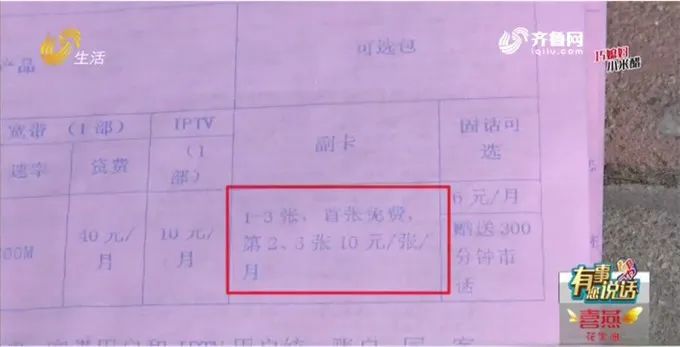 生活
齐鲁网
iqilu.com
巧媳妇
小米醋
产品
可选包
宽带（1部）
IPTV
副卡
固话可
选
速率
资费
（1
部）
00M
40元/
月
10元/
月
1-3张，首张免费，
第2、3张10元/张/
月
6元/月
赠送300
分钟市
话
有事
您说话
喜燕
花生油